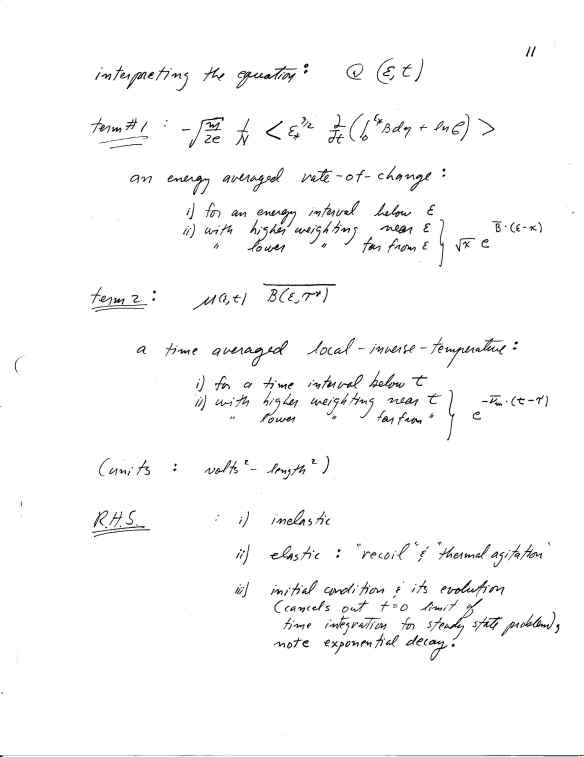 11
interpreting the equation: Q (ε, t)
term #1 : -√(m/2e) 1/N < ε*^3/2 ∂/∂t (∫₀^ε* B dη + ln G) >
an energy averaged rate-of-change:
i) for an energy interval below ε
ii) with higher weighting near ε } √x e^B̅·(ε-x)
" lower " far from ε
term 2 : μ(1,t) B(ε,τ*)
a time averaged local-inverse-temperature:
i) for a time interval below t
ii) with higher weighting near t } e^-ν̅m·(t-τ)
" lower " far from "
(units : volts²-length²)
R.H.S. : i) inelastic
ii) elastic : "recoil" & "thermal agitation"
iii) initial condition & its evolution
(cancels out t=0 limit of
time integration for steady state problem),
note exponential decay.